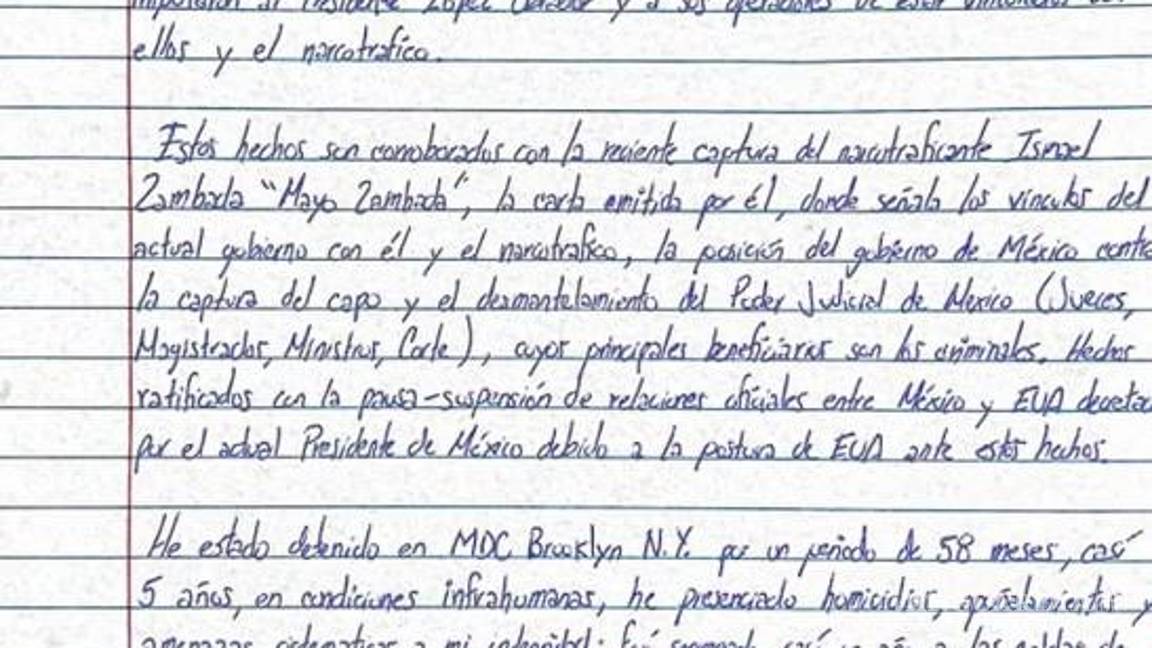 al Presidente López Obrador y a sus operadores de estar vinculados
ellos y el narcotrafico.
Estos hechos son corroborados con la reciente captura del narcotraficante Ismael
Zambada "Mayo Zambada", la carta emitida por él, donde señala los vinculos del
actual gobierno con él y el narcotrafico, la posición del gobierno de México contra
la captura del capo y el desmantelamiento del Poder Judicial de Mexico (Jueces,
Magistrados, Ministros, Corte), cuyos principales beneficiarios son los criminales. Hechos
ratificados con la pausa-suspensión de relaciones oficiales entre México y EUA
por el actual Presidente de México debido a la postura de EUA ante estos hechos.
He estado detenido en MDC Brooklyn N.Y. por un periodo de 58 meses, casí
5 años, en condiciones infrahumanas, he presenciado homicidios, apuñalamientos y
amenazas a mi integridad; fuí casí un año a las celdas de